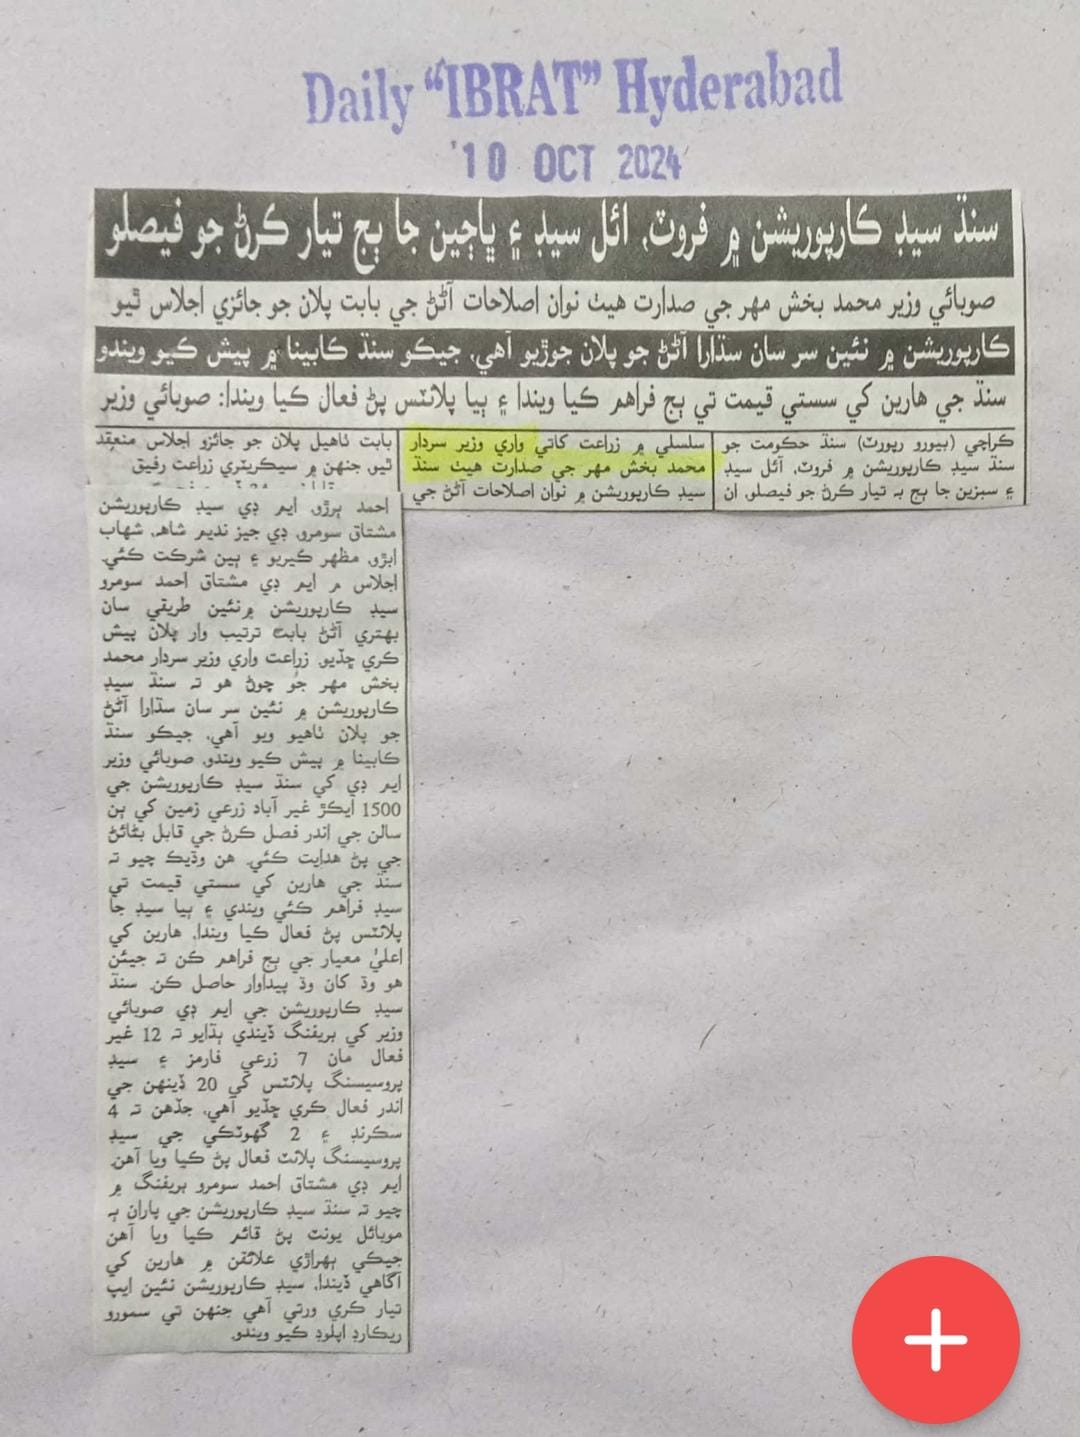 Daily “IBRAT” Hyderabad
10 OCT 2024
سنڌ سيڊ ڪارپوريشن ۾ فروٽ، ائل سيڊ ۽ ڀاڄين جا ٻج تيار ڪرڻ جو فيصلو
صوبائي وزير محمد بخش مهر جي صدارت هيٺ نوان اصلاحات آڻڻ جي بابت پلان جو جائزي اجلاس ٿيو
ڪارپوريشن ۾ نئين سر سان سڌارا آڻڻ جو پلان جوڙيو آهي، جيڪو سنڌ ڪابينا ۾ پيش ڪيو ويندو
سنڌ جي هارين کي سستي قيمت تي ٻج فراهم ڪيا ويندا ۽ ٻيا پلانٽس پڻ فعال ڪيا ويندا: صوبائي وزير
ڪراچي (بيورو رپورٽ) سنڌ حڪومت جو
سنڌ سيڊ ڪارپوريشن ۾ فروٽ، آئل سيڊ
۽ سبزين جا ٻج به تيار ڪرڻ جو فيصلو، ان
سلسلي ۾ زراعت کاتي واري وزير سردار
محمد بخش مهر جي صدارت هيٺ سنڌ
سيڊ ڪارپوريشن ۾ نوان اصلاحات آڻڻ جي
بابت ٺاهيل پلان جو جائزو اجلاس منعقد
ٿيو، جنهن ۾ سيڪريٽري زراعت رفيق
احمد ٻرڙو، ايم ڊي سيڊ ڪارپوريشن
مشتاق سومرو، ڊي جيز نديم شاهه، شهاب
ابڙو، مظهر کيريو ۽ ٻين شرڪت ڪئي.
اجلاس ۾ ايم ڊي مشتاق احمد سومرو
سيڊ ڪارپوريشن ۾ نئين طريقي سان
بهتري آڻڻ بابت ترتيب وار پلان پيش
ڪري ڇڏيو. زراعت واري وزير سردار محمد
بخش مهر جو چوڻ هو ته سنڌ سيڊ
ڪارپوريشن ۾ نئين سر سان سڌارا آڻڻ
جو پلان ٺاهيو ويو آهي، جيڪو سنڌ
ڪابينا ۾ پيش ڪيو ويندو. صوبائي وزير
ايم ڊي کي سنڌ سيڊ ڪارپوريشن جي
1500 ايڪڙ غير آباد زرعي زمين کي ٻن
سالن جي اندر فصل ڪرڻ جي قابل بڻائڻ
جي پڻ هدايت ڪئي. هن وڌيڪ چيو ته
سنڌ جي هارين کي سستي قيمت تي
سيڊ فراهم ڪئي ويندي ۽ ٻيا سيڊ جا
پلانٽس پڻ فعال ڪيا ويندا، هارين کي
اعليٰ معيار جي ٻج فراهم ڪن ته جيئن
هو وڌ کان وڌ پيداوار حاصل ڪن. سنڌ
سيڊ ڪارپوريشن جي ايم ڊي صوبائي
وزير کي بريفنگ ڏيندي ٻڌايو ته 12 غير
فعال مان 7 زرعي فارمز ۽ سيڊ
پروسيسنگ پلانٽس کي 20 ڏينهن جي
اندر فعال ڪري ڇڏيو آهي، جڏهن ته 4
سڪرنڊ ۽ 2 گهوٽڪي جي سيڊ
پروسيسنگ پلانٽ فعال پڻ ڪيا ويا آهن.
ايم ڊي مشتاق احمد سومرو بريفنگ ۾
چيو ته سنڌ سيڊ ڪارپوريشن جي پاران ٻه
موبائل يونٽ پڻ قائم ڪيا ويا آهن
جيڪي ٻهراڙي علائقن ۾ هارين کي
آگاهي ڏيندا، سيڊ ڪارپوريشن نئين ايپ
تيار ڪري ورتي آهي جنهن تي سمورو
ريڪارڊ اپلوڊ ڪيو ويندو.